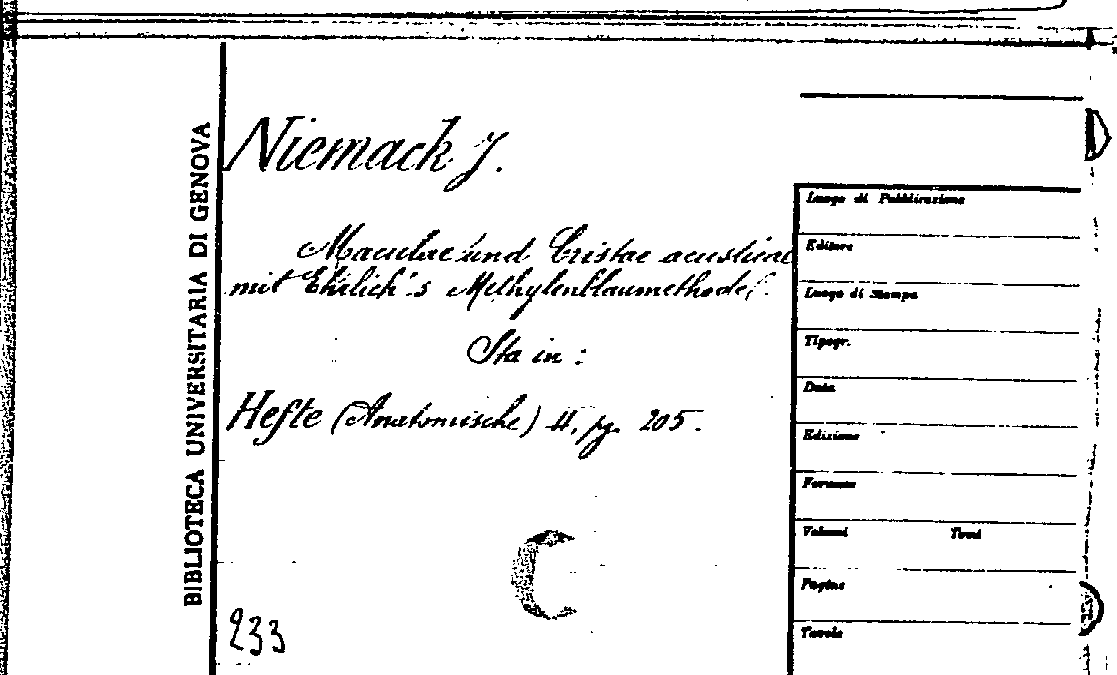 BIBLIOTECA UNIVERSITARIA DI GENOVA
Niemack J.
Maculae und Cristae acusticae
mit Ehrlich's Methylenblaumethode.
Sta in :
Hefte (Anatomische) II, pg. 205.
C
233
Luogo di Pubblicazione
Editore
Luogo di Stampa
Tipogr.
Data
Edizione
Formato
Volumi Tomi
Pagine
Tavole